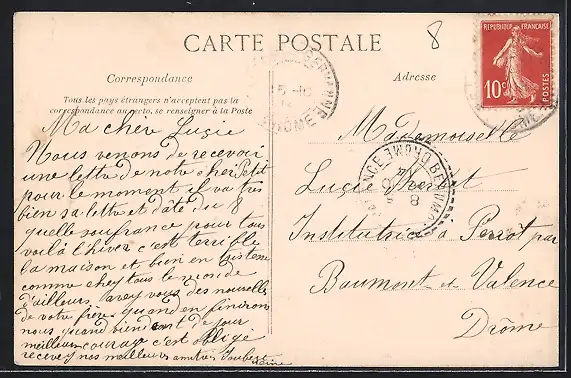 CARTE POSTALE
8
Correspondance
Adresse
Tous les pays étrangers n'acceptent pas la
correspondance au recto, se renseigner à la Poste
REPUBLIQUE FRANÇAISE
10c
POSTES
BEAUMONT
DRÔME
VALENCE DROME
8
Ma cher Lucie
Nous venons de recevoir
une lettre de notre cher Petit
pour le moment il va très
bien sa lettre et daté du 8
quelle soufrance pour tous
voilà l'hiver c'est terrible
la maison et bien en
comme chez tous le monde
d'ailleurs, avez vous des nouvelle
de votre frère, quand en finirons
nous quand de jour
meilleur courage c'est obligé
recevez nos meilleurs amitiés Joubert
Mademoiselle
Lucie
Institutrice a par
Baumont et Valence
Drôme